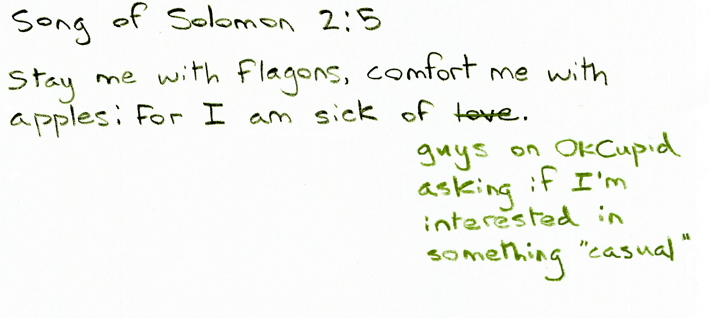 Song of Solomon 2:5
Stay me with flagons, comfort me with
apples: for I am sick of love.
guys on OkCupid
asking if I'm
interested in
something "casual"